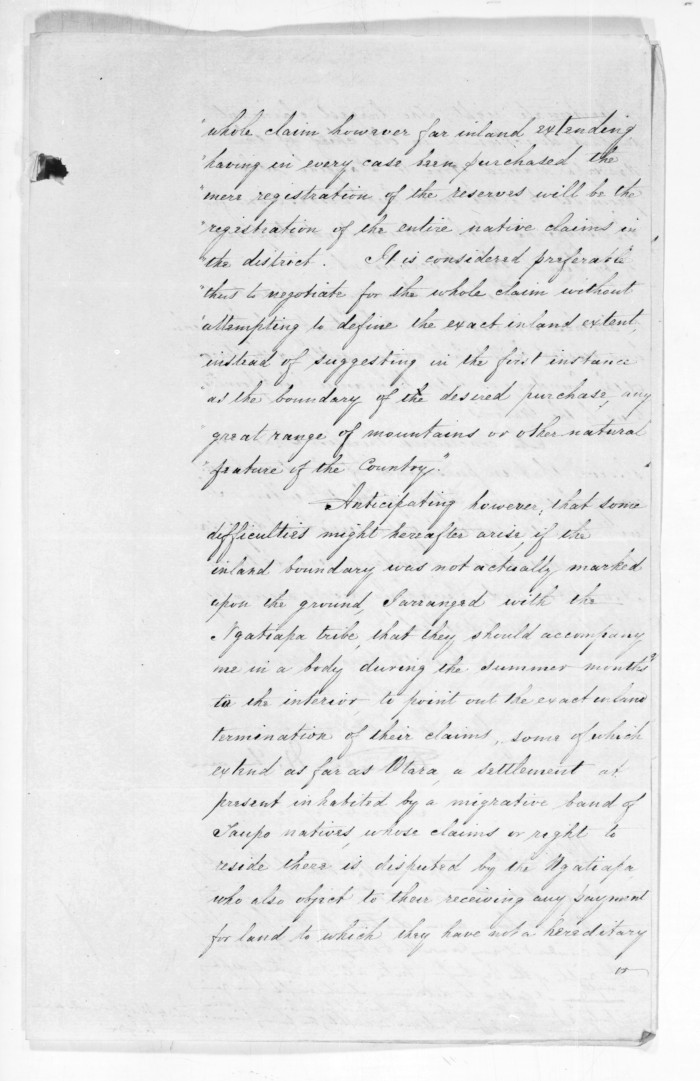 "whole claim however far inland extending
"having in every case been purchased the
"mere registration of the reserves will be the
"registration of the entire native claims in
"the district. It is considered preferable
"thus to negotiate for the whole claim without
"attempting to define the exact inland extent,
"instead of suggesting in the first instance
as the boundary of the desired purchase, any
great range of mountains or other natural
feature of the Country."
Anticipating however, that some
difficulties might hereafter arise if the
inland boundary was not actually marked
upon the ground, I arranged with the
Ngatiapa tribe, that they should accompany
me in a body during the summer months
to the interior, to point out the exact inland
termination of their claims, some of which
extend as far as Otara, a settlement at
present inhabited by a migrative band of
Taupo natives, whose claims or right to
reside there is disputed by the Ngatiapa
who also object to their receiving any payment
for land to which they have not a hereditary
or